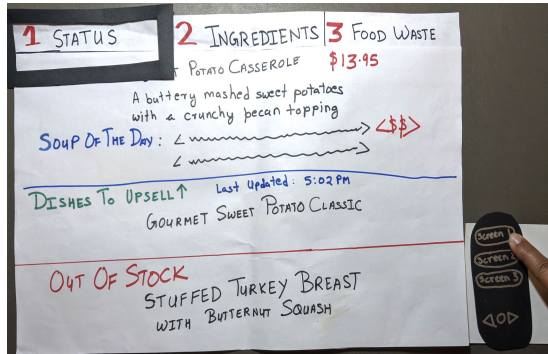 1 STATUS
2 INGREDIENTS
3 FOOD WASTE
T POTATO CASSEROLE $13.95
A buttery mashed sweet potatoes
with a crunchy pecan topping
SOUP OF THE DAY: <$$>
Last Updated: 5:02 PM
DISHES TO UPSELL ↑
GOURMET SWEET POTATO CLASSIC
OUT OF STOCK
STUFFED TURKEY BREAST
WITH BUTTERNUT SQUASH
Screen
Screen 2
Screen 3